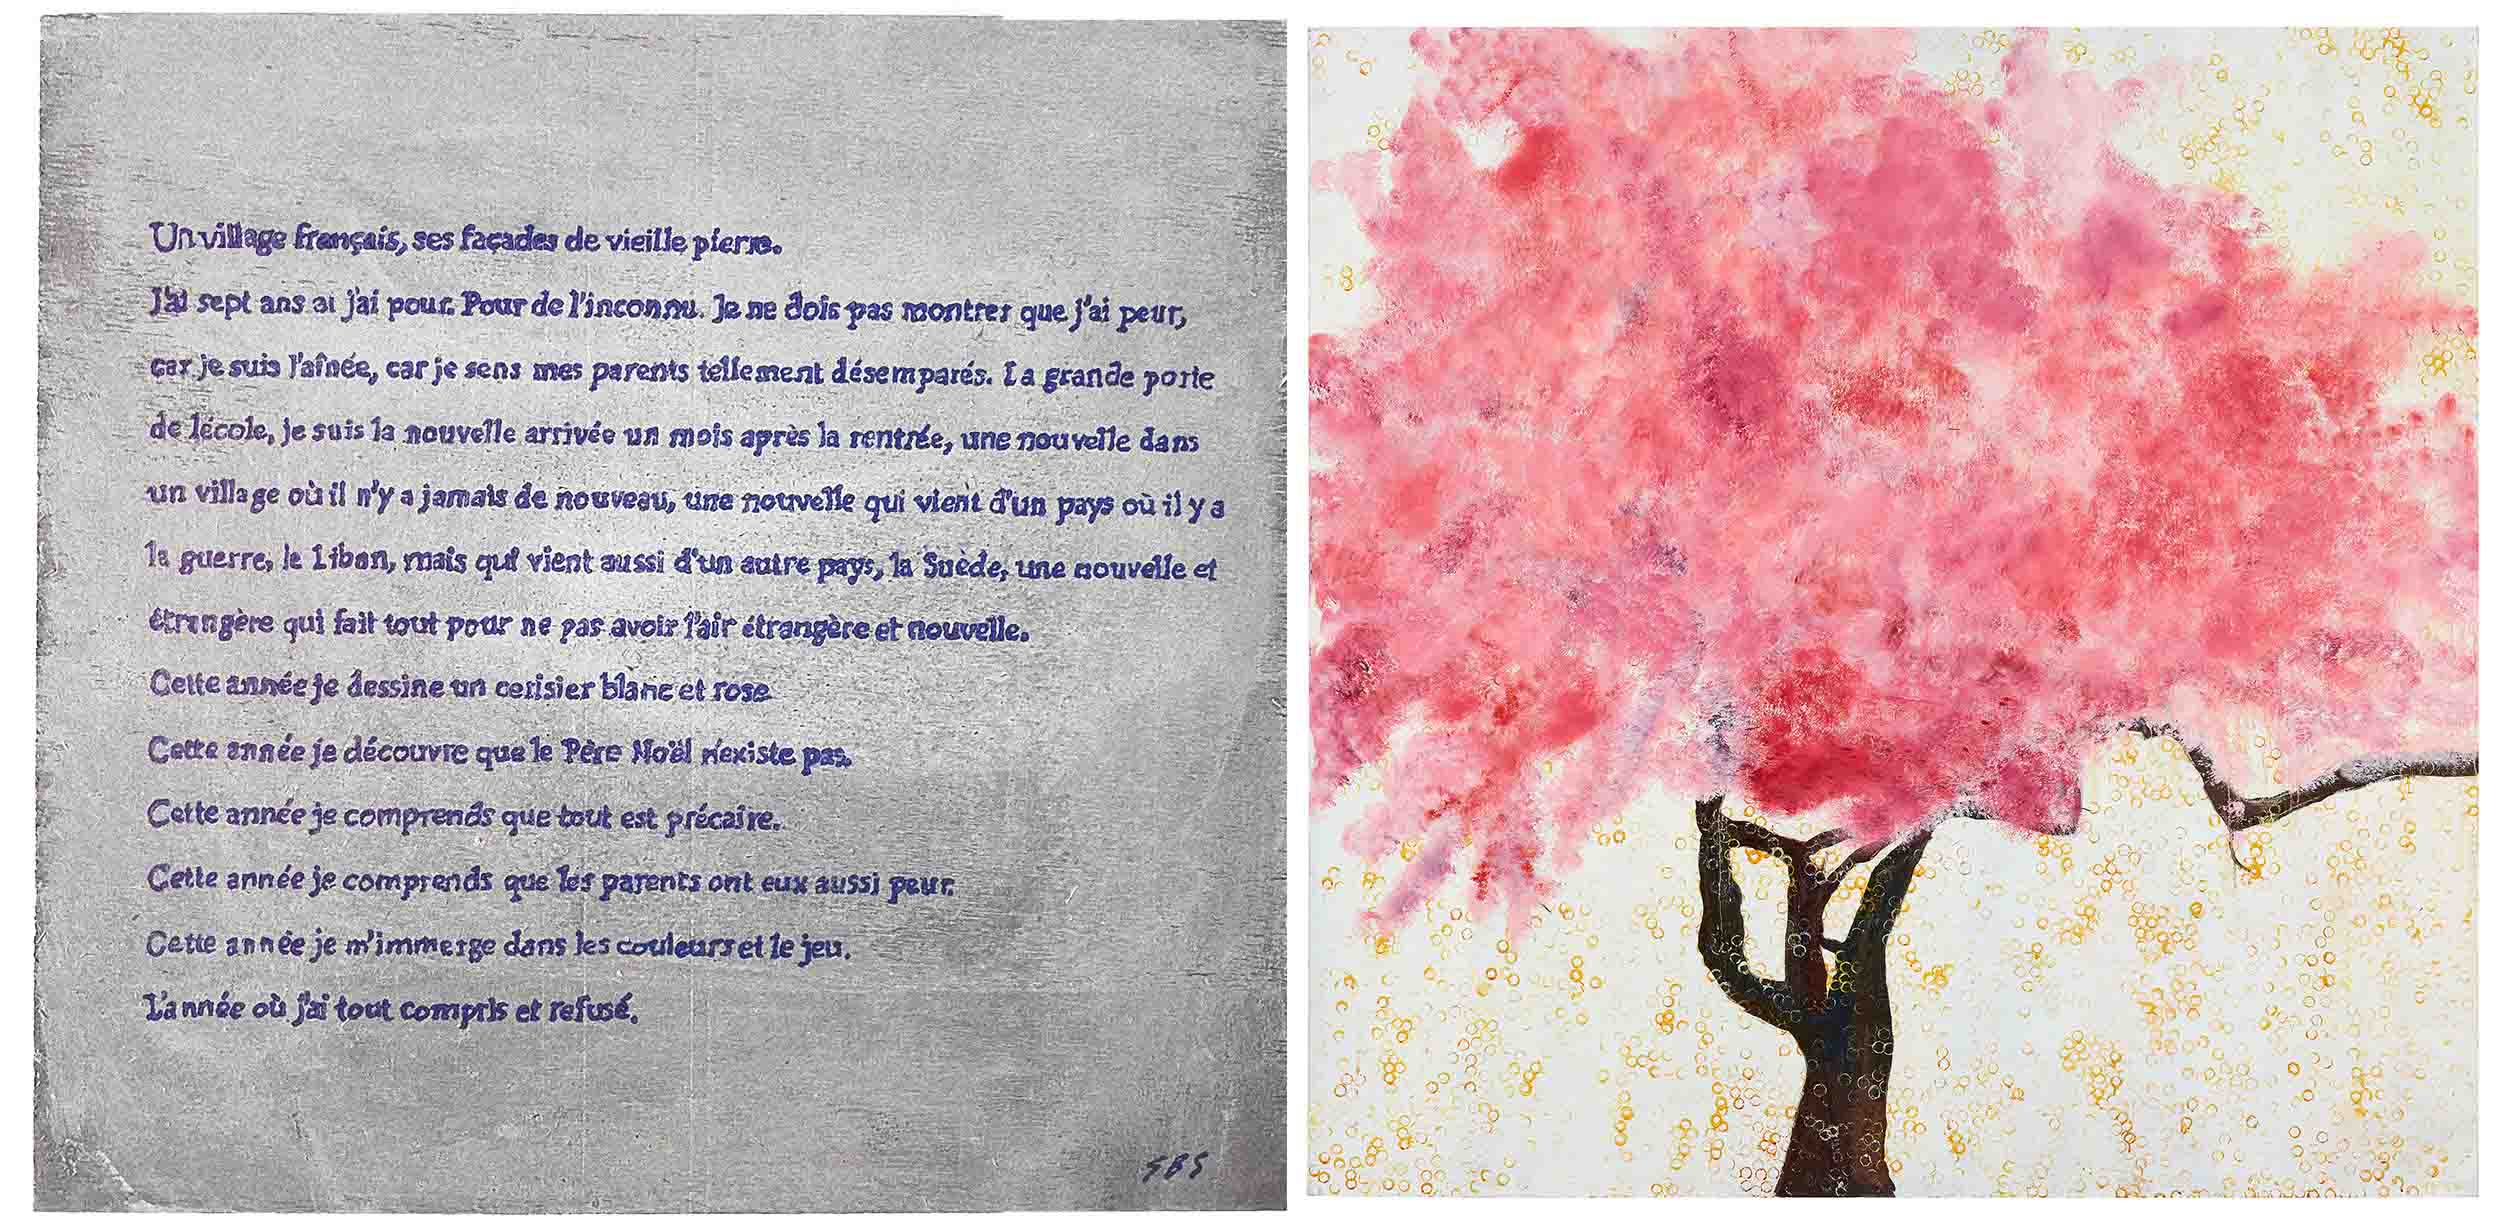 Un village français, ses façades de vieille pierre.
J'ai sept ans et j'ai peur. Peur de l'inconnu. Je ne dois pas montrer que j'ai peur,
car je suis l'aînée, car je sens mes parents tellement désemparés. La grande porte
de l'école, je suis la nouvelle arrivée un mois après la rentrée, une nouvelle dans
un village où il n'y a jamais de nouveau, une nouvelle qui vient d'un pays où il y a
la guerre, le Liban, mais qui vient aussi d'un autre pays, la Suède, une nouvelle et
étrangère qui fait tout pour ne pas avoir l'air étrangère et nouvelle.
Cette année je dessine un cerisier blanc et rose
Cette année je découvre que le Père Noël n'existe pas.
Cette année je comprends que tout est précaire.
Cette année je comprends que les parents ont eux aussi peur.
Cette année je m'immerge dans les couleurs et le jeu.
L'année où j'ai tout compris et refusé.
SBS